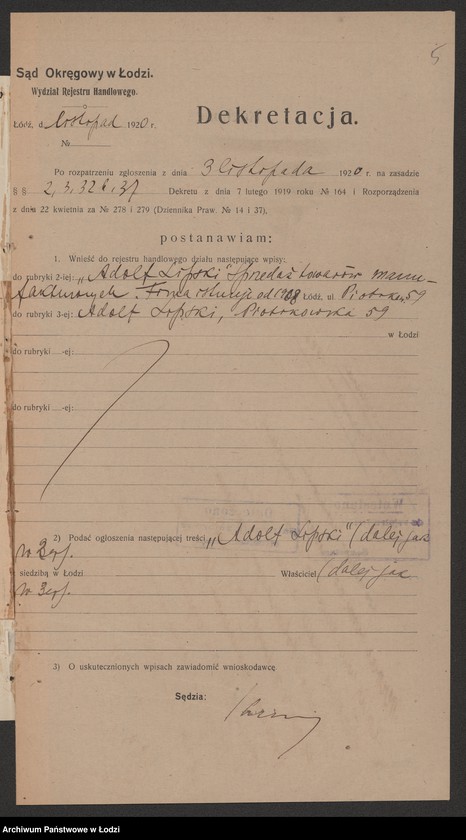 5
Sąd Okręgowy w Łodzi.
Wydział Rejestru Handlowego.
Łódź, d. listopad 1920 r.
№
Dekretacja.
Po rozpatrzeniu zgłoszenia z dnia 3 listopada 1920 r. na zasadzie
§ § 2, 3, 32 i 37 Dekretu z dnia 7 lutego 1919 roku № 164 i Rozporządzenia
z dnia 22 kwietnia za № 278 i 279 (Dziennika Praw. № 14 i 37),
postanawiam:
1. Wnieść do rejestru handlowego działu następujące wpisy:
do rubryki 2-iej: „Adolf Lipski" Sprzedaż towarów manu-
fakturowych. Firma istnieje od 1908 Łódź, ul. Piotrkow. 59
do rubryki 3-ej: Adolf Lipski, Piotrkowska 59
w Łodzi
do rubryki -ej:
do rubryki -ej:
2) Podać ogłoszenia następującej treści „Adolf Lipski" (dalej jak
w 2ej).
siedzibą w Łodzi Właściciel (dalej jak
w 3ej).
3) O uskutecznionych wpisach zawiadomić wnioskodawcę
Sędzia:
Archiwum Państwowe w Łodzi